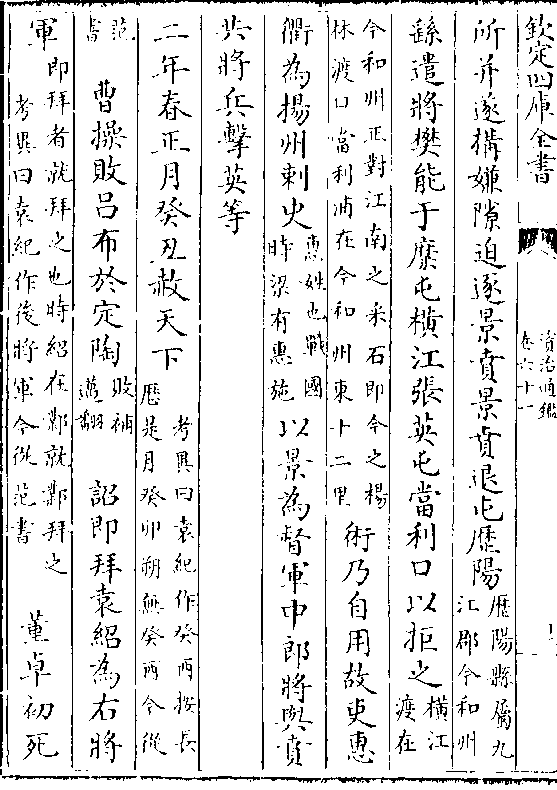 欽定四庫全書
資治通鑑
卷六十一
所并遂搆嫌隙迫逐景賁景賁退屯歷陽歷陽縣屬九江郡今和州
繇遣將樊能于糜屯橫江張英屯當利口以拒之橫江渡在
今和州正對江南之采石即今之楊林渡口當利浦在今和州東十二里術乃自用故吏惠
衢為揚州刺史惠姓也戰國時梁有惠施以景為督軍中郎將與賁
共將兵擊英等
二年春正月癸丑赦天下考異曰袁紀作癸酉按長歷是月癸卯朔無癸酉今從
范書曹操敗呂布於定陶敗補邁翻詔即拜袁紹為右將
軍即拜者就拜之也時紹在鄴就鄴拜之考異曰袁紀作後將軍今從范書董卓初死